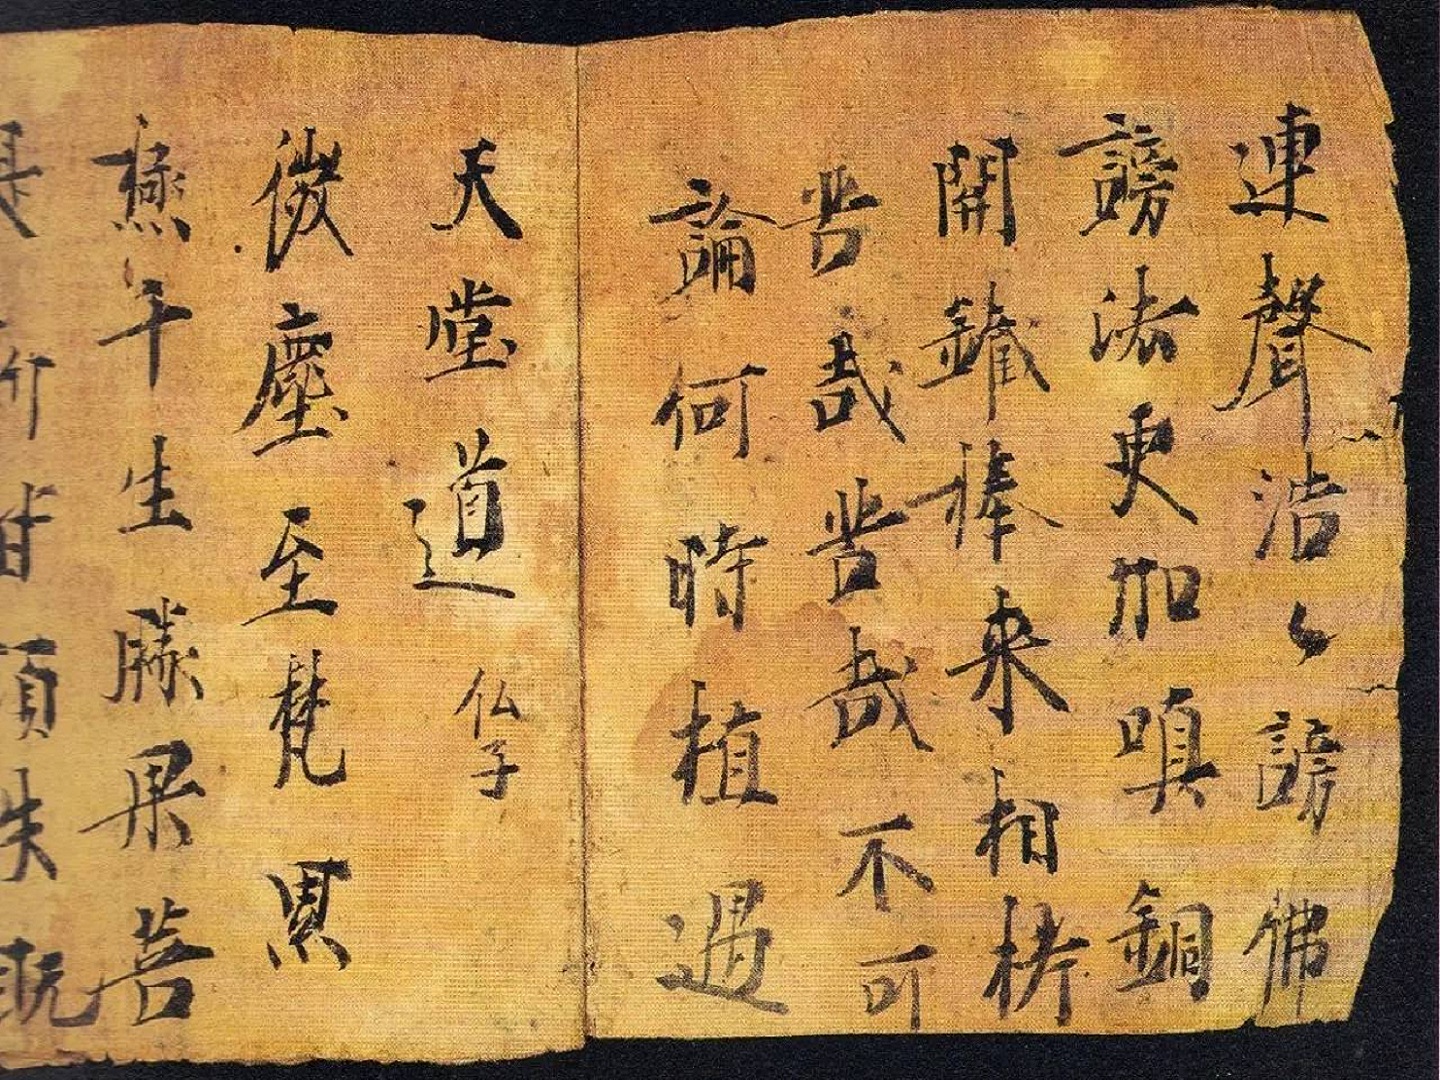 連聲浩々謗佛
謗法更加嗔銅
開鐵棒來相栲
苦哉苦哉不可
論何時植遇
天堂道 仏子
微塵至梵
千生勝果菩